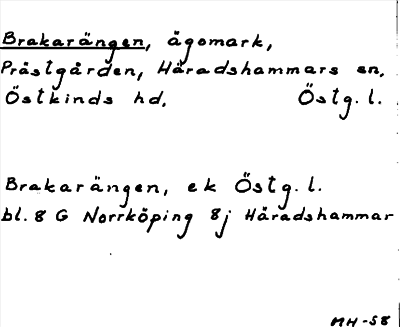 Brakarängen, ägomark,
Prästgården, Häradshammars sn,
Östkinds hd, Östg. l.
Brakarängen, ek Östg. l.
bl. 8 G Norrköping 8j Häradshammar
MH-58